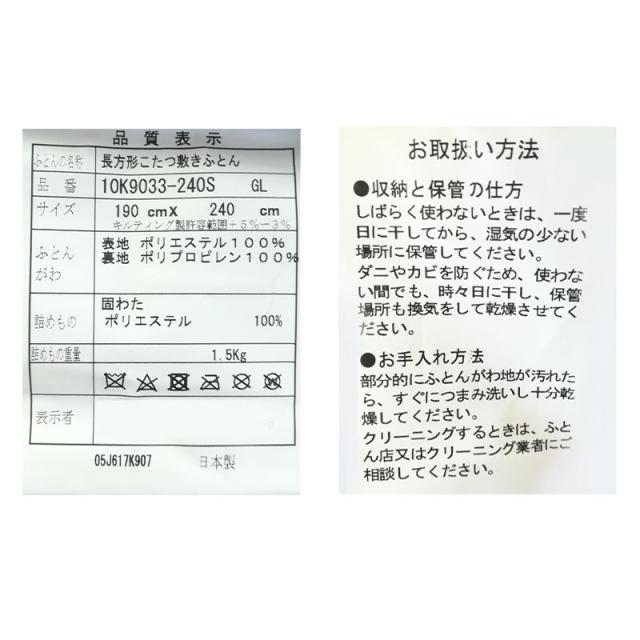 品質表示
ふとんの名称 長方形こたつ敷きふとん
品番 10K9033-240S GL
サイズ 190 cmX 240 cm
キルティング製許容範囲+5%-3%
ふとんがわ 表地 ポリエステル100%
裏地 ポリプロピレン100%
詰めもの 固わた
ポリエステル 100%
詰めもの重量 1.5Kg
表示者
05J617K907 日本製
お取扱い方法
●収納と保管の仕方
しばらく使わないときは、一度
日に干してから、湿気の少ない
場所に保管してください。
ダニやカビを防ぐため、使わな
い間でも、時々日に干し、保管
場所も換気をして乾燥させてく
ださい。
●お手入れ方法
部分的にふとんがわ地が汚れた
ら、すぐにつまみ洗いし十分乾
燥してください。
クリーニングするときは、ふと
ん店又はクリーニング業者にご
相談してください。